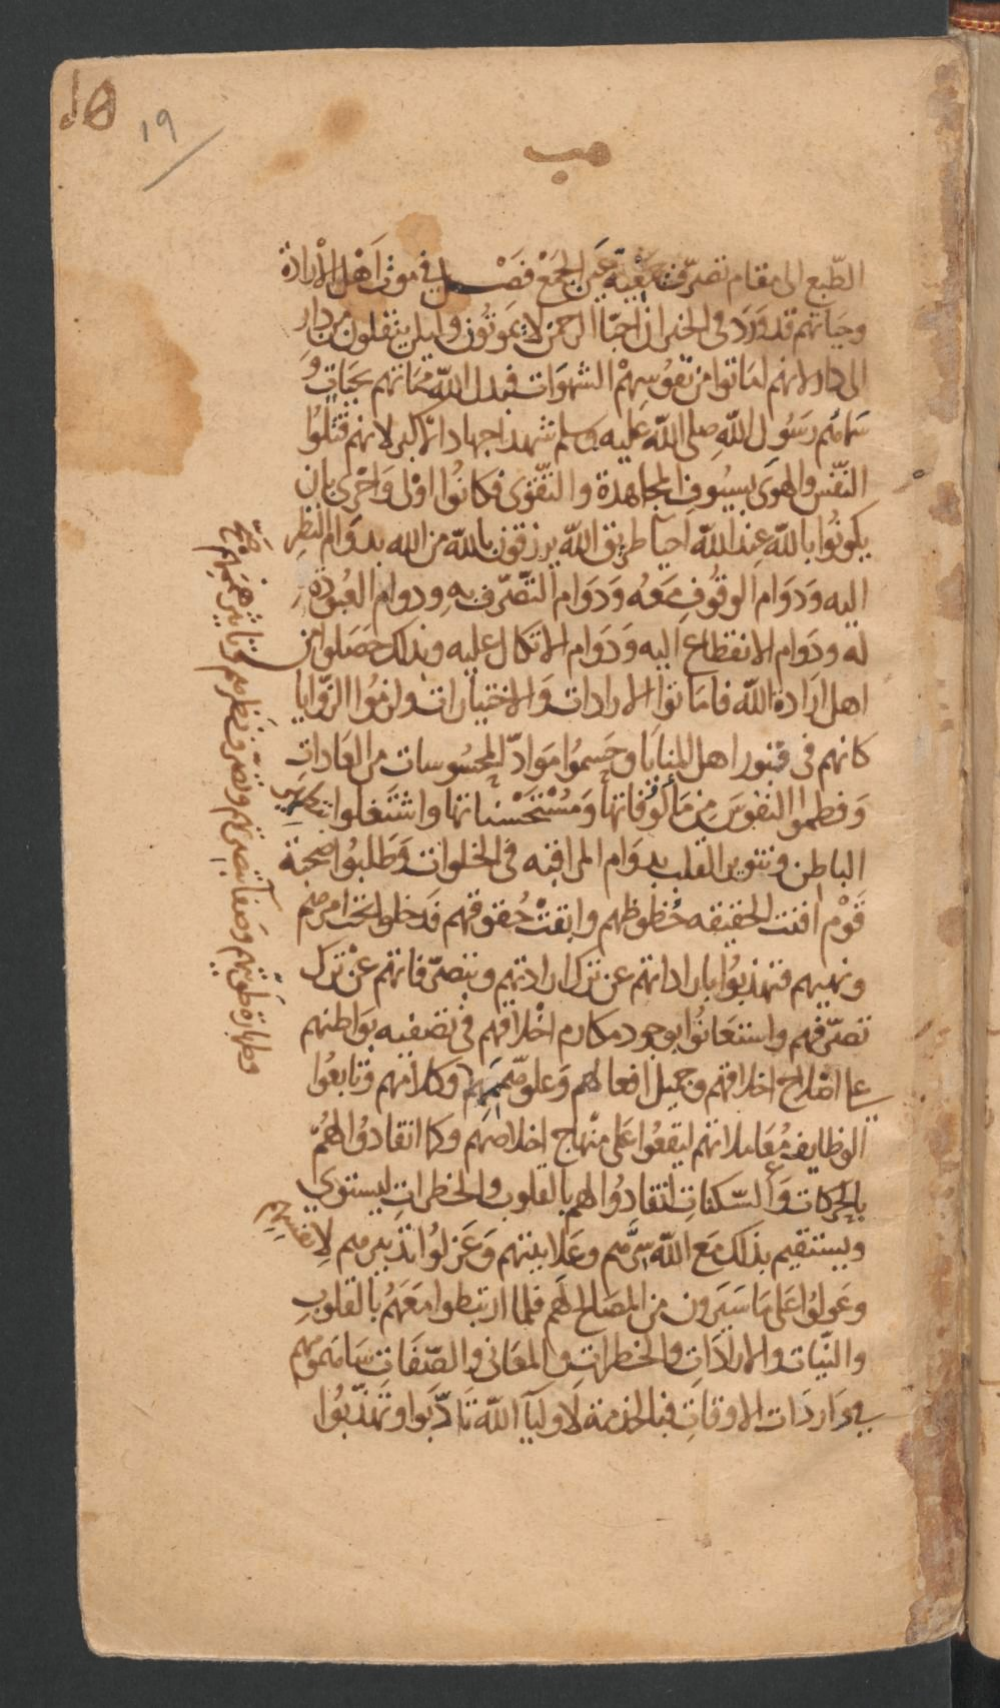 19
الطّبع الى مقام تصرّف عين الجمع فصل في موت اهل الارادة
وحياتهم قد ورد في الخبر ان احبّا الرحمن لا يموتون وانما ينقلون من دار
الى دار لانهم لما ماتوا من نفوسهم الشهوات فبدل الله مماتهم بحيات و
سماهم رسول الله صلى الله عليه وسلم شهدا جهاد الاكبر لانهم قتلوا
النّفس والهوى بسيوف المجاهدة والتّقوى فكانوا اولى واحرى بان
يكونوا بالله عند الله احيا طريق الله يرزقون بالله من الله بدوام النظر
اليه ودوام الوقوف معه ودوام التّصرّف به ودوام العبودة
له ودوام الانقطاع اليه ودوام الاتكال عليه وبذلك حصلوا من
اهل ارادة الله فاماتوا الارادات والاختيارات ولزموا الزّوايا
كانهم في قبور اهل المنايا وحسموا موادّ المحسوسات من العادات
وفطموا النفوس من مألوفاتها ومستحسناتها واشتغلوا
الباطن وتنوير القلب بدوام المراقبه في الخلوات وطلبوا صحبة
قوم افنت الحقيقه حظوظهم وابقت حقوقهم فدخلوا تحت امرهم
ونهيهم فتهذبوا باراداتهم عن ترك ارادتهم وبتصرّفاتهم عن ترك
تصرّفهم واستعانوا بوجود مكارم اخلاقهم في تصفيه بواطنهم
على اصلاح اخلاقهم وجميل افعالهم وعلوّ هممهم وكلامهم وتابعوا
الوظايف معاملاتهم ليقعوا على منهاج اخلاصهم وكما انقادوا لهم
بالحركات والسّكنات انقادوا لهم بالقلوب والخطرات ليستوي
ويستقيم بذلك مع الله سرّهم وعلانيتهم وعزلوا تدبيرهم لانفسهم
وعولوا على ما سيرون من المصالح لهم فلما ارتبطوا معهم بالقلوب
والنّيات والارادات والخطرات والمعانى والصّفات سامحوهم
في واردات الاوقات فبالخدمة لاوليآ الله تادّبوا وتهذّبوا
وطهارة طويّتهم وصفا بصيرتهم وتصرّف نظرهم وتاثير هممهم صح